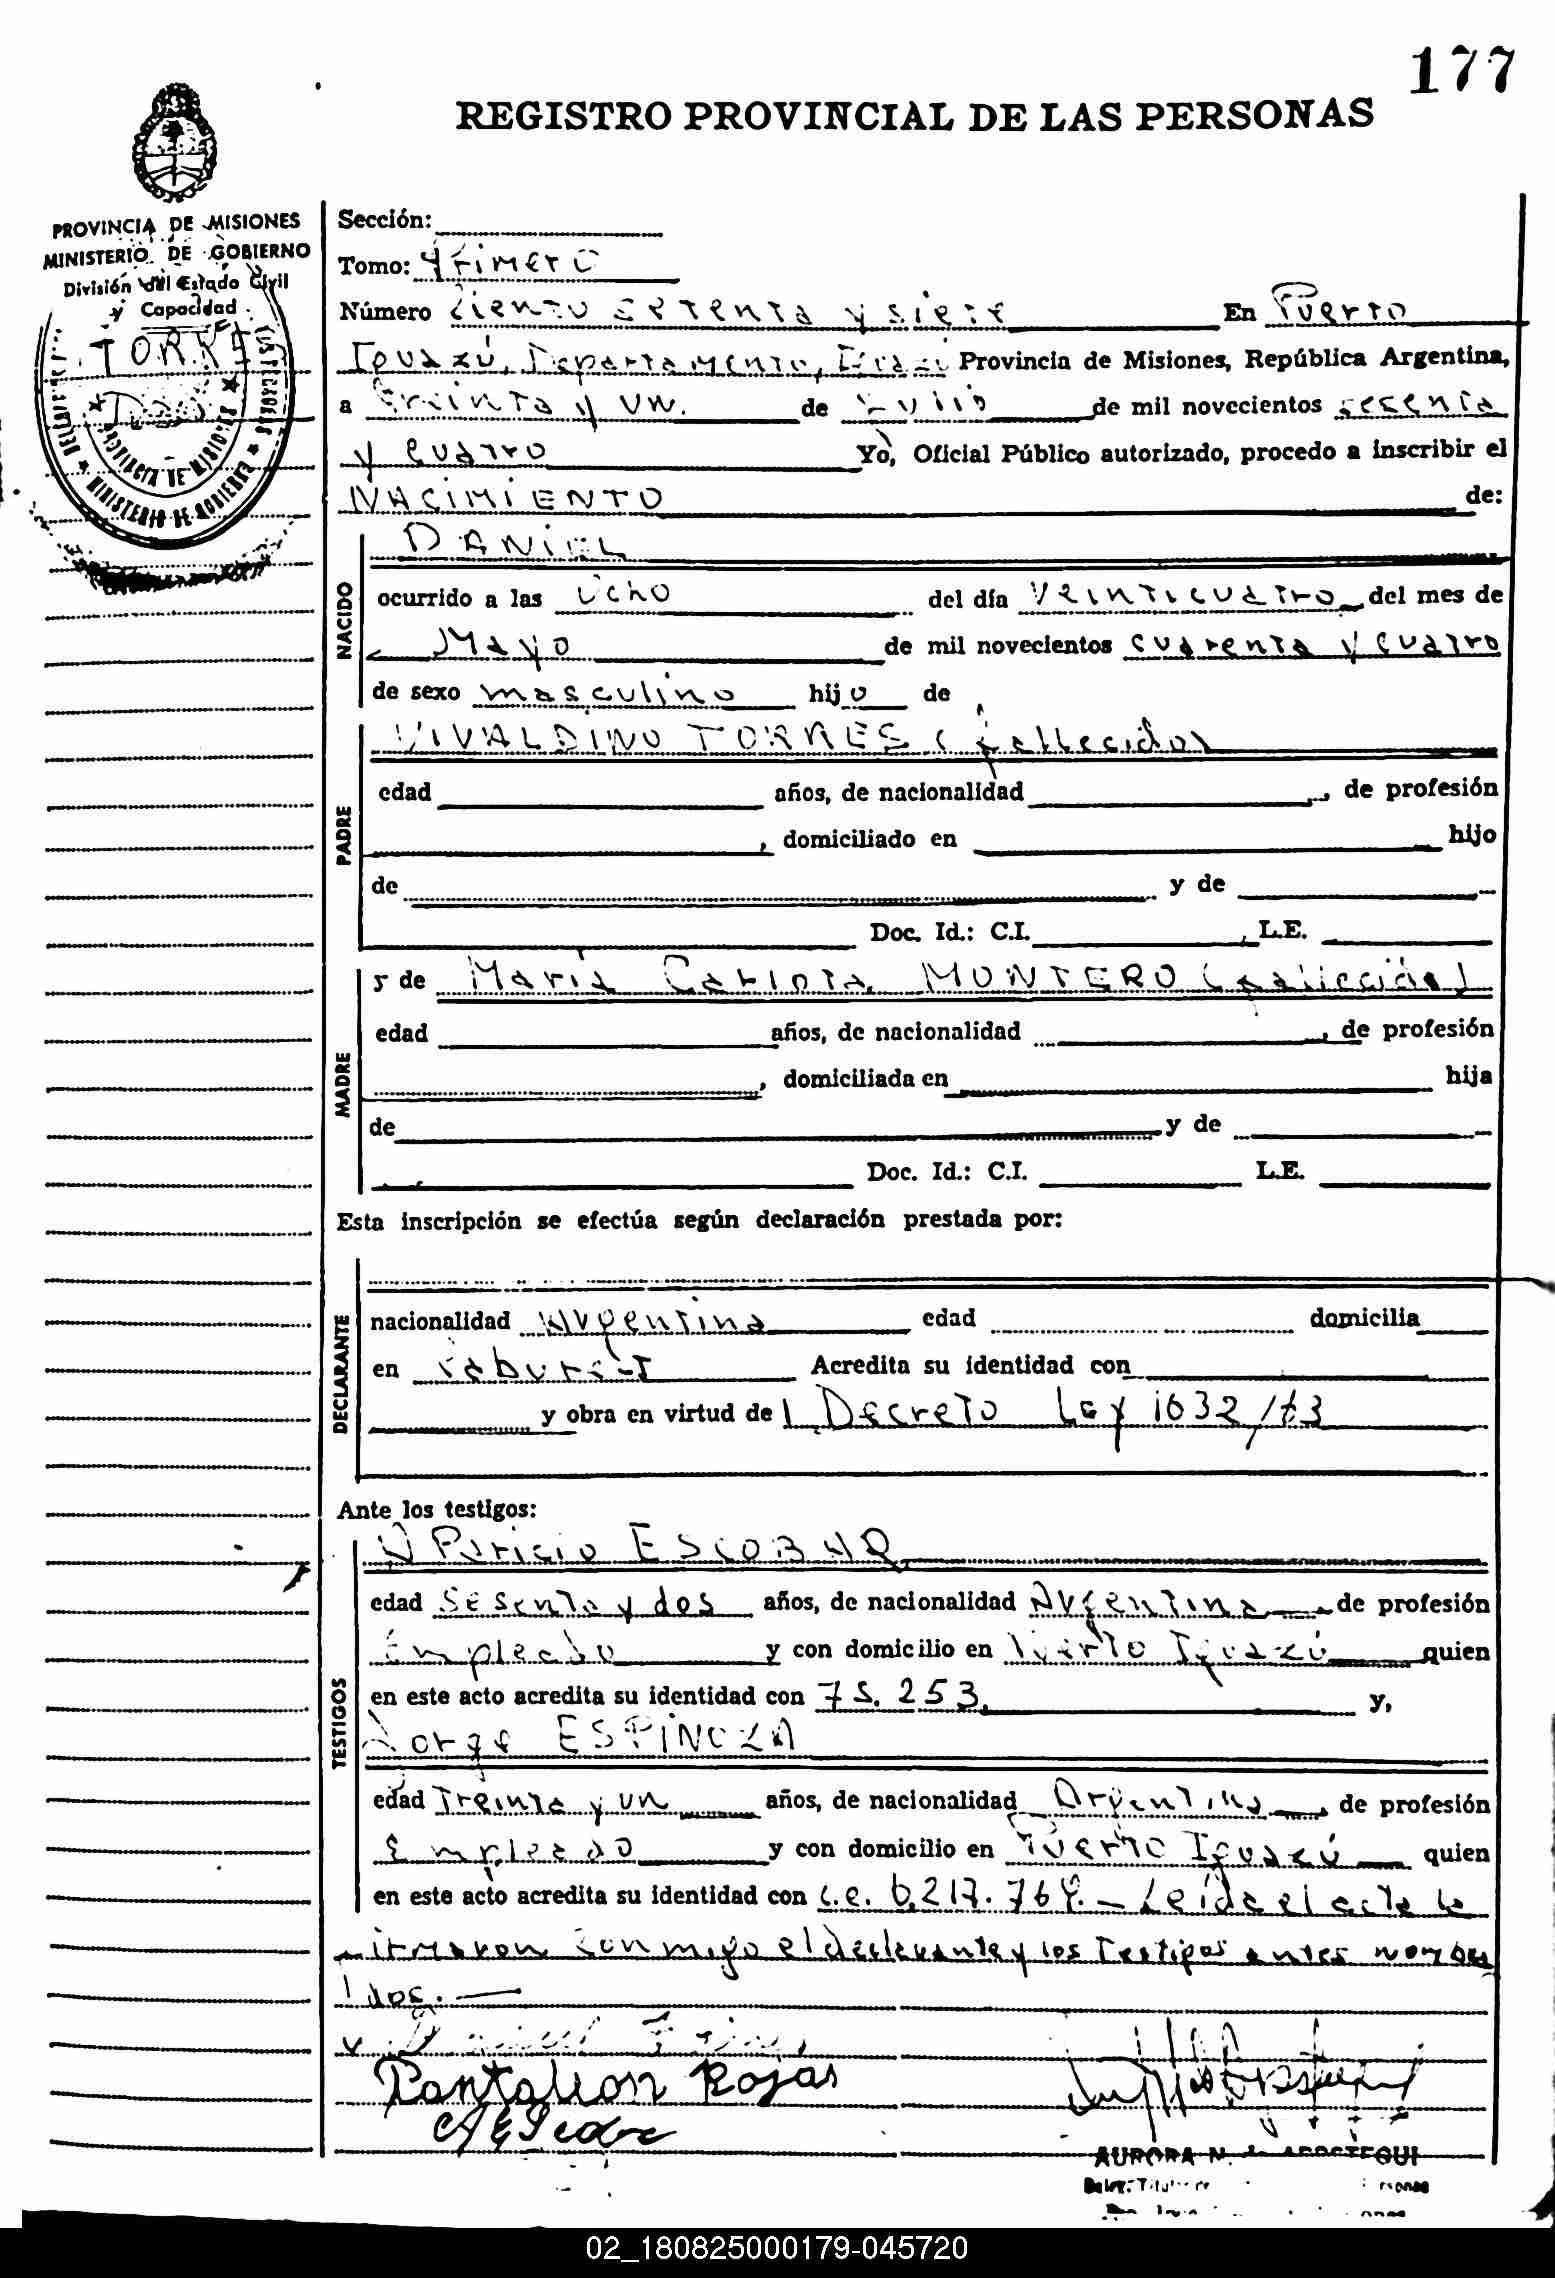 177
REGISTRO PROVINCIAL DE LAS PERSONAS
PROVINCIA DE MISIONES
MINISTERIO DE GOBIERNO
División del Estado Civil
y Capacidad
MINISTERIO DE GOBIERNO
PROVINCIA DE MISIONES
Sección:
Tomo: Primero
Número Ciento setenta y siete En Puerto
Iguazú, Departamento, Iguazú Provincia de Misiones, República Argentina,
a treinta y un. de Julio de mil novecientos sesenta
y cuatro Yo, Oficial Público autorizado, procedo a inscribir el
NACIMIENTO de:
NACIDO
DANIEL
ocurrido a las ocho del día Veinticuatro del mes de
Mayo de mil novecientos cuarenta y cuatro
de sexo masculino hijo de
PADRE
VIVALDINO TORRES (fallecido)
edad años, de nacionalidad , de profesión
, domiciliado en hijo
de y de
Doc. Id.: C.I. , L.E.
MADRE
y de María Carlota MONTERO (fallecida)
edad años, de nacionalidad , de profesión
, domiciliada en hija
de y de
Doc. Id.: C.I. L.E.
Esta inscripción se efectúa según declaración prestada por:
DECLARANTE
nacionalidad Argentina edad domicilia
en Acredita su identidad con
y obra en virtud de Decreto Ley 1632/63
Ante los testigos:
TESTIGOS
Aparicio ESCOBAR
edad Sesenta y dos años, de nacionalidad Argentina de profesión
Empleado y con domicilio en Puerto Iguazú quien
en este acto acredita su identidad con 75.253. y,
Jorge ESPINOZA
edad Treinta y un años, de nacionalidad Argentina, de profesión
Empleado y con domicilio en Puerto Iguazú quien
en este acto acredita su identidad con Leída el acta la
firmaron conmigo el declarante y los Testigos antes nombra
dos.—
Pantalion Rojas
AURORA N. de AROSTEGUI
02_180825000179-045720